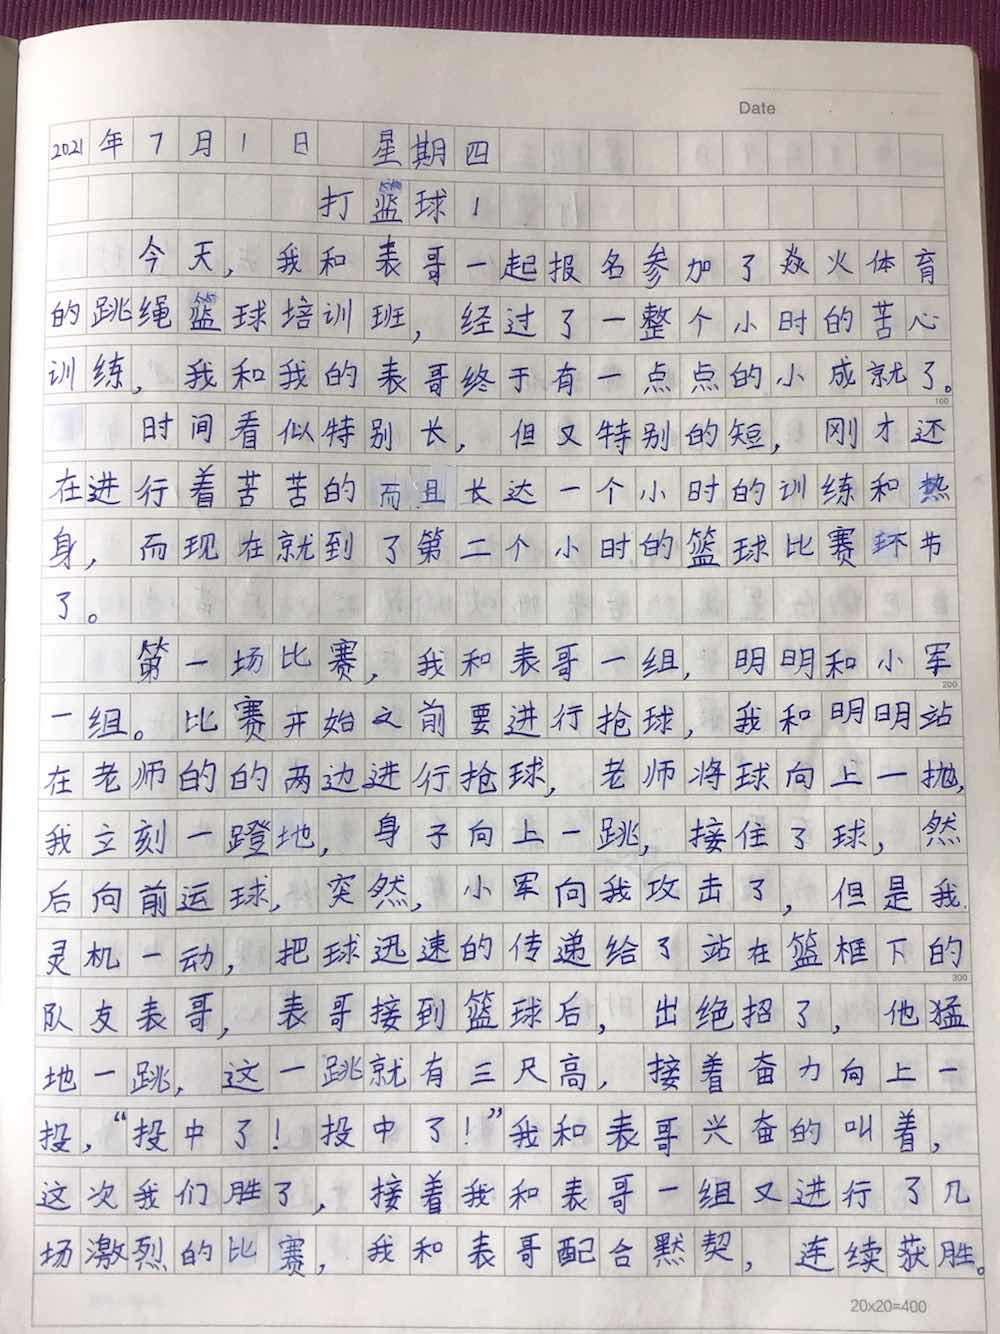 Date
2021年7月1日 星期四
打篮球1
今天，我和表哥一起报名参加了焱火体育
的跳绳篮球培训班，经过了一整个小时的苦心
训练，我和我的表哥终于有一点点的小成就了。
100
时间看似特别长，但又特别的短，刚才还
在进行着苦苦的而且长达一个小时的训练和热
身，而现在就到了第二个小时的篮球比赛环节
了。
第一场比赛，我和表哥一组，明明和小军
200
一组。比赛开始之前要进行抢球，我和明明站
在老师的的两边进行抢球，老师将球向上一抛，
我立刻一蹬地，身子向上一跳，接住了球，然
后向前运球，突然，小军向我攻击了，但是我
灵机一动，把球迅速的传递给了站在篮框下的
300
队友表哥，表哥接到篮球后，出绝招了，他猛
地一跳，这一跳就有三尺高，接着奋力向上一
投，“投中了！投中了！”我和表哥兴奋的叫着，
这次我们胜了，接着我和表哥一组又进行了几
场激烈的比赛，我和表哥配合默契，连续获胜。
20x20=400